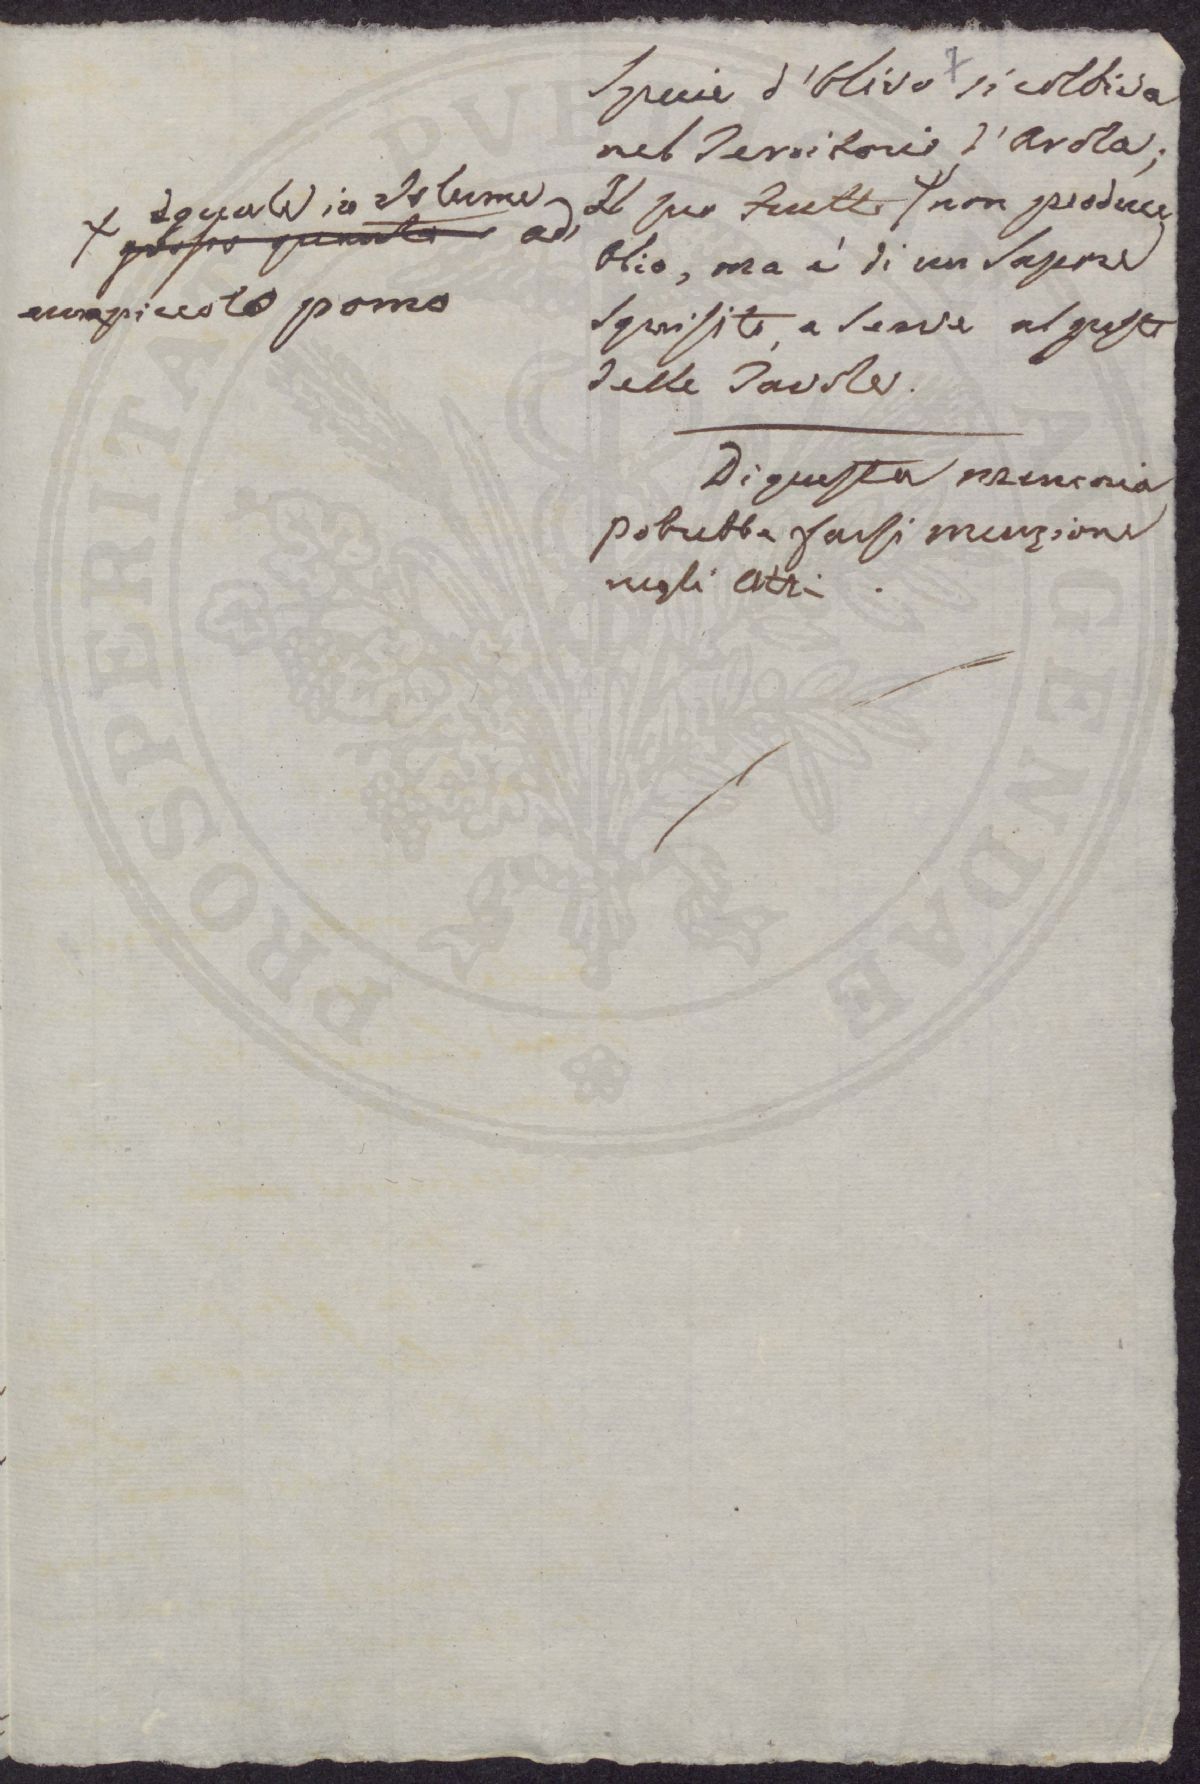 Specie d'Olivo si coltiva
nel Territorio d'Avola;
Il suo frutto + non produce
Olio, ma è di un Sapore
Squisito, e serve al gusto
delle Tavole.
Di questa memoria
potrebbe farsi menzione
negli Atti.
+ eguale in volume
grosso quanto ad
un piccolo pomo
PROSPERITATI PVBLICAE AVGENDAE